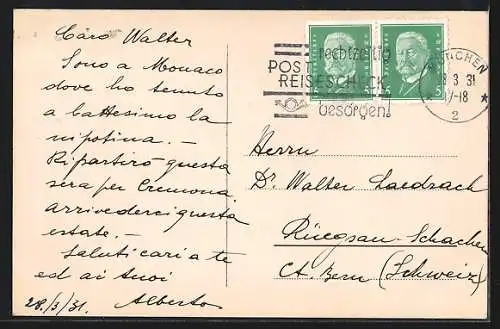 Caro Walter
Sono a Monaco
dove ho tenuto
a battesimo la
nipotina. —
Ripartirò questa
sera per Cremona
arrivederci questa
estate. —
Saluti cari a te
ed ai tuoi
28./3/31. Alberto
rechtzeitig
POST
REISESCHECK
besorgen!
MÜNCHEN
3 31
-18
2
5
5
Herrn
Dr. Walter Laedrach
Rüegsau-Schachen
Ct. Bern (Schweiz)